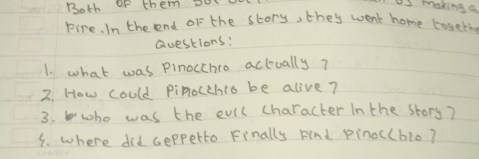 Both of them
making a
Fire. In the end of the story, they went home togethe
Questions:
1. what was Pinocchio actually?
2. How could Pinocchio be alive?
3. who was the evil character In the story?
4. where did Geppetto Finally Find Pinocchio?